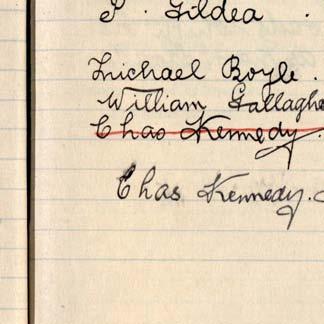 P. Gildea .
Michael Boyle .
William Gallaghe
Chas Kennedy .
Chas Kennedy .